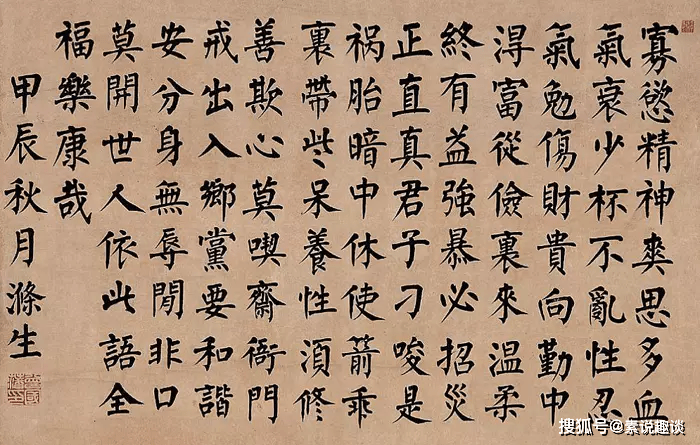 寡慾精神爽思多血
氣衰少杯不亂性忍
氣勉傷財貴向勤中
淂富從儉裏來温柔
終有益強暴必招災
正直真君子刁唆是
祸胎暗中休使箭乖
裏帶些呆養性須修
善欺心莫喫齋衙門
戒出入鄉黨要和諧
安分身無辱閒非口
莫開世人依此語全
福樂康哉
甲辰秋月滌生
搜狐号@素说趣谈